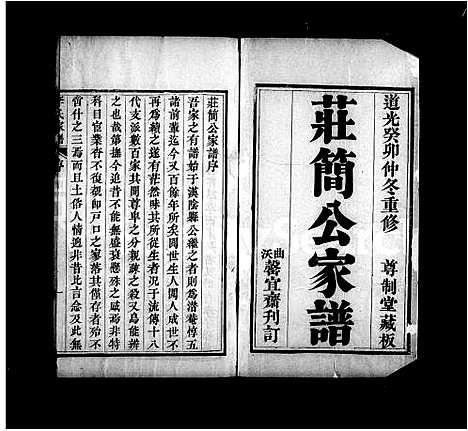 道光癸卯仲冬重修
尊制堂藏板
莊簡公家譜
曲沃馨宜齋刊訂
莊簡公家譜序
吾家之有譜始于漢陰縣公繼之者則為潛菴惇五
諸前輩迄今又百餘年所矣閱世生人閱人成世不
再為續之遂有茫然昧其所從生者況于流傳十八
代支派數百家其間尊卑之分親疎之殺又烏能辨
之也哉第撫今追昔不能無盛衰懸殊之感焉非特
科目宦業者不復覯即戸口之家落其僅存者殆不
啻什之三焉而且土俗人情迥非昔比言念及此無